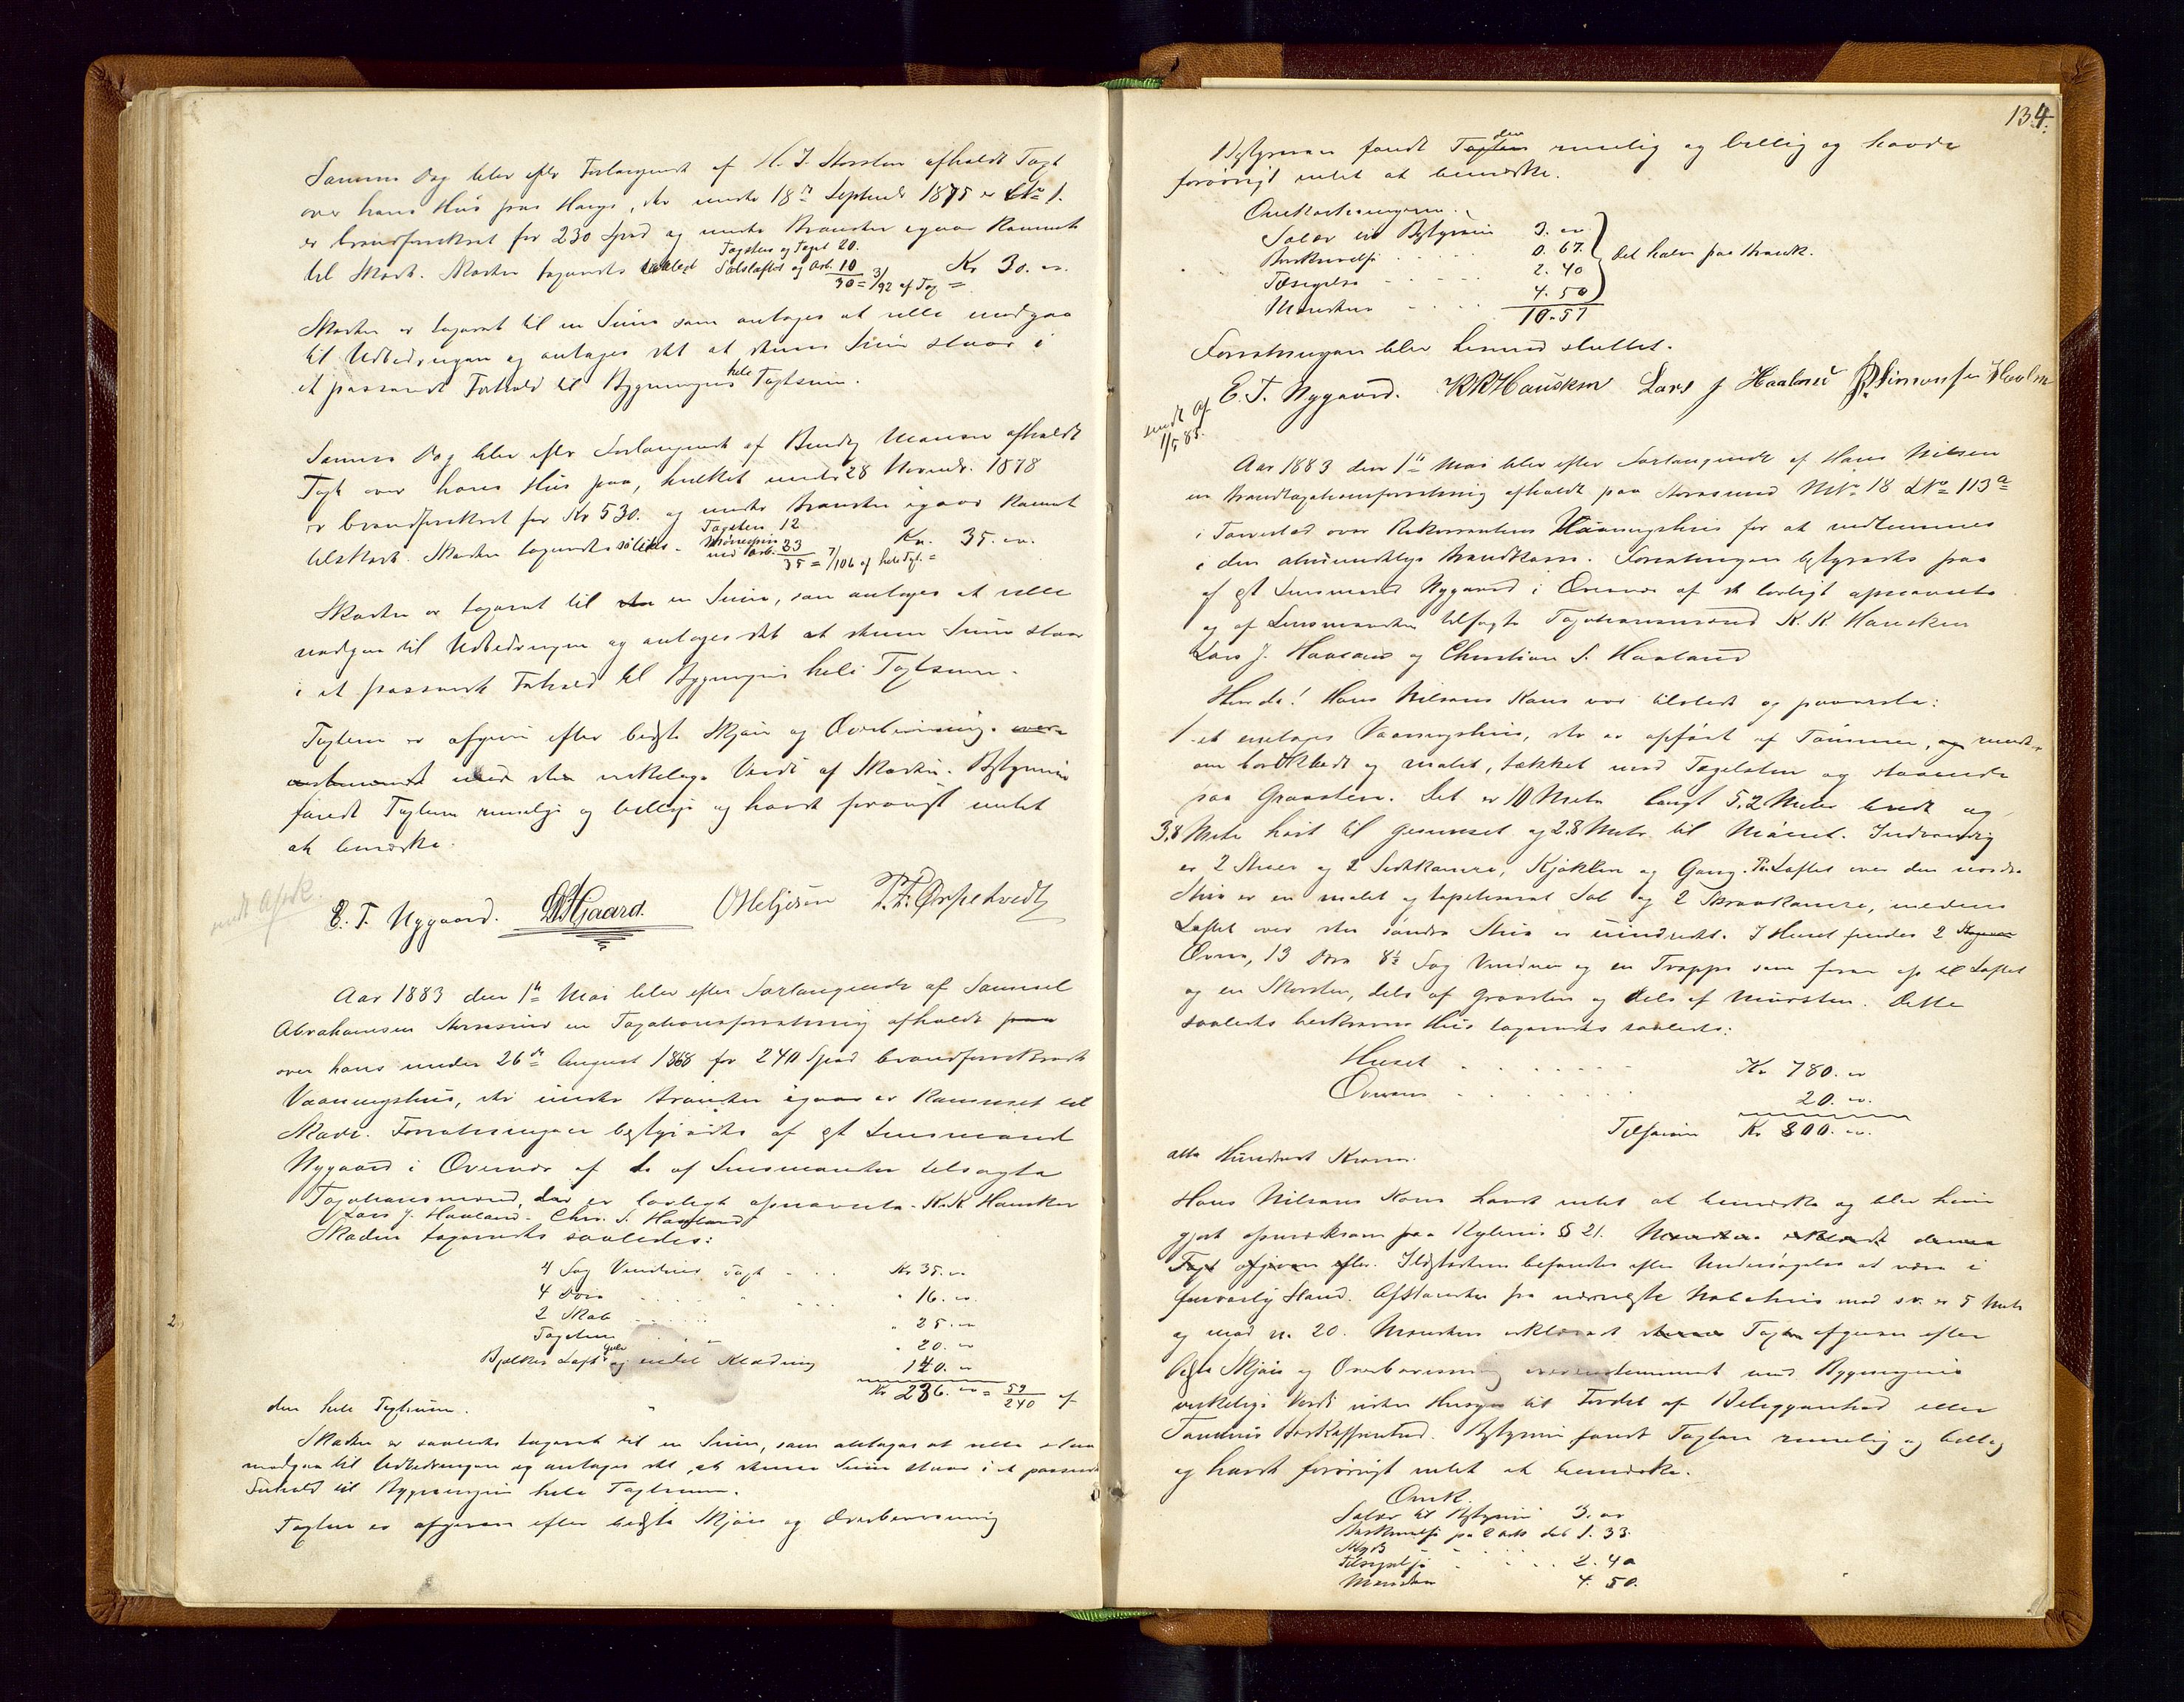 Samme Dag blev efter Forlangende af H. J. Storsten afholdt Taxt
over hans Hus paa Hauge, der under 18de Septembr 1875 er LNo 1.
er brandforsikret for 230 Spd og under Branden igaar Rammet
til Skade. Skaden taxeredes saaledes
Tagsten og Taget 20.
Salsloftet og Arb. 10
30 = 3/92 af Tax = Kr 30. "
Skaden er taxeret til en Sum som antages at ville medgaa
til Udbedringen og antages det at denne Sum staar i
et passende Forhold til Bygningens hele Taxtsum.
Samme Dag blev efter Forlangende af Monsen afholdt
Taxt over hans Hus paa, hvilket under 28 Novembr. 1878
er brandforsikret for Kr 530. og under Branden igaar Rammet
til Skade. Skaden taxeredes således - Tagsten 12
Mønespær
med Arb. 23
35 = 7/106 af hele Taxt. = Kr. 35. "
Skaden er taxeret til en Sum, som antages at ville
medgaa til Udbedringen og antages det at denne Sum staar
i et passende Forhold til Bygningens hele Taxtsum.
Taxten er afgiven efter bedste Skjøn og Overbevisning.
med den virkelige Verdi af Skaden. Bestyreren
fandt Taxten rimelig og billig og havde forøvrigt intet
at bemærke.
E. T. Nygaard. Gaard. O Heljesen
Aar 1883 den 1te Mai blev efter Forlangende af Samuel
Abrahamsen Storesund en Taxationsforretning afholdt paa
over hans under 26de August 1868 for 240 Spd brandforsikrede
Vaaningshus, der under Branden igaar er Rammet til
Skade. Forretningen bestyredes af Lensmand
Nygaard i Overvær af de af Lensmanden tilsagte
Taxationsmænd, der er lovligt opnævnte. K. K. Hausken
Lars J. Haaland. Chr. S. Haaland
Skaden taxeredes saaledes:
4 Fag Vinduer Taxt - Kr 35. "
4 Døre " 16. "
2 Skab " 25. "
Tagsten " 20. "
Bjelker Loft Gulv og endel Klædning 140. "
Kr 236. " = 59/240 af
den hele Taxtsum.
Skaden er saaledes taxeret til en Sum, som antages at ville
medgaa til Udbedringen og antages det, at denne Sum staar i et passende
Forhold til Bygningens hele Taxtsum.
Taxten er afgiven efter bedste Skjøn og Overbevisning
134.
Bestyreren fandt Taxten den rimelig og billig og havde
forøvrigt intet at bemærke.
Omkostningerne.
Salær til Bestyreren 3. "
Beskrivelse 0. 67.
Tilsigelse 2. 40
Mændene 4. 50
10. 57
det halve paa Brandk.
Forretningen blev hermed sluttet.
E. T. Nygaard. K K Hausken Lars J Haaland
sendt Af
1/5 83.
Aar 1883 den 1te Mai blev efter Forlangende af Hans Nilsen
en Brandtaxationsforretning afholdt paa Storesund MNo 18 LNo 113a
i Torvestad over Rekvirentens Vaaningshus for at indlemmes
i den almindelige Brandkasse. Forretningen bestyredes
af Lensmand Nygaard i Overvær af de lovligt opnævnte
og af Lensmanden tilsagte Taxationsmænd K. K. Hausken
Lars J. Haaland og Christian S. Haaland
Hans Nilsens Kone var tilstede og paaviste:
1 et etages Vaaningshus, der er opført af Tømmer, og rundt-
om bordklædt og malet, tækket med Tagsten og staaende
paa Graasten. Det er 10 Meter langt 5,2 Meter bredt og
3,8 Meter høit til Gesimset og 2.8 Meter til Mønet. Indvendig
er 2 Stuer og 2 Sidekamre, Kjøkken og Gang. Paa Loftet over den nordre
Stue er en malet og tapetseret Sal og 2 Skraakamre, medens
Loftet over den søndre Stue er uindredt. I Huset findes 2
Ovne, 13 Døre 8½ Fag Vinduer og en Trappe som fører op til Loftet
og en Skorsten, dels af Graasten og dels af Mursten. Dette
saaledes beskrevne Hus taxeredes saaledes:
Huset Kr 780. "
Ovnene 20. "
Tilsammen Kr 800. "
otte Hundrede Kroner.
Hans Nilsens Kone havde intet at bemærke og blev hun
gjort opmærksom paa Reglernes § 21. Mændene erklærede denne
Taxt afgiven efter. Ildstederne befandtes efter Undersøgelse at være i
forsvarlig Stand. Afstanden fra nærmeste Nabohus mod sv. er 5 Meter
og mod n. 20. Mændene erklærede denne Taxten afgiven efter
bedste Skjøn og Overbevisning overensstemmende med Bygningens
virkelige Verdi uden Hensyn til Fordel af Beliggenhed eller
Tomtens Beskaffenhed. Bestyreren fandt Taxten rimelig og billig
og havde forøvrigt intet at bemærke.
Omk.
Salær til Bestyreren 3. "
Beskrivelse paa 2 Ark 1. 33.
Skyds
Tilsigelse 2. 40
Mændene 4. 50.